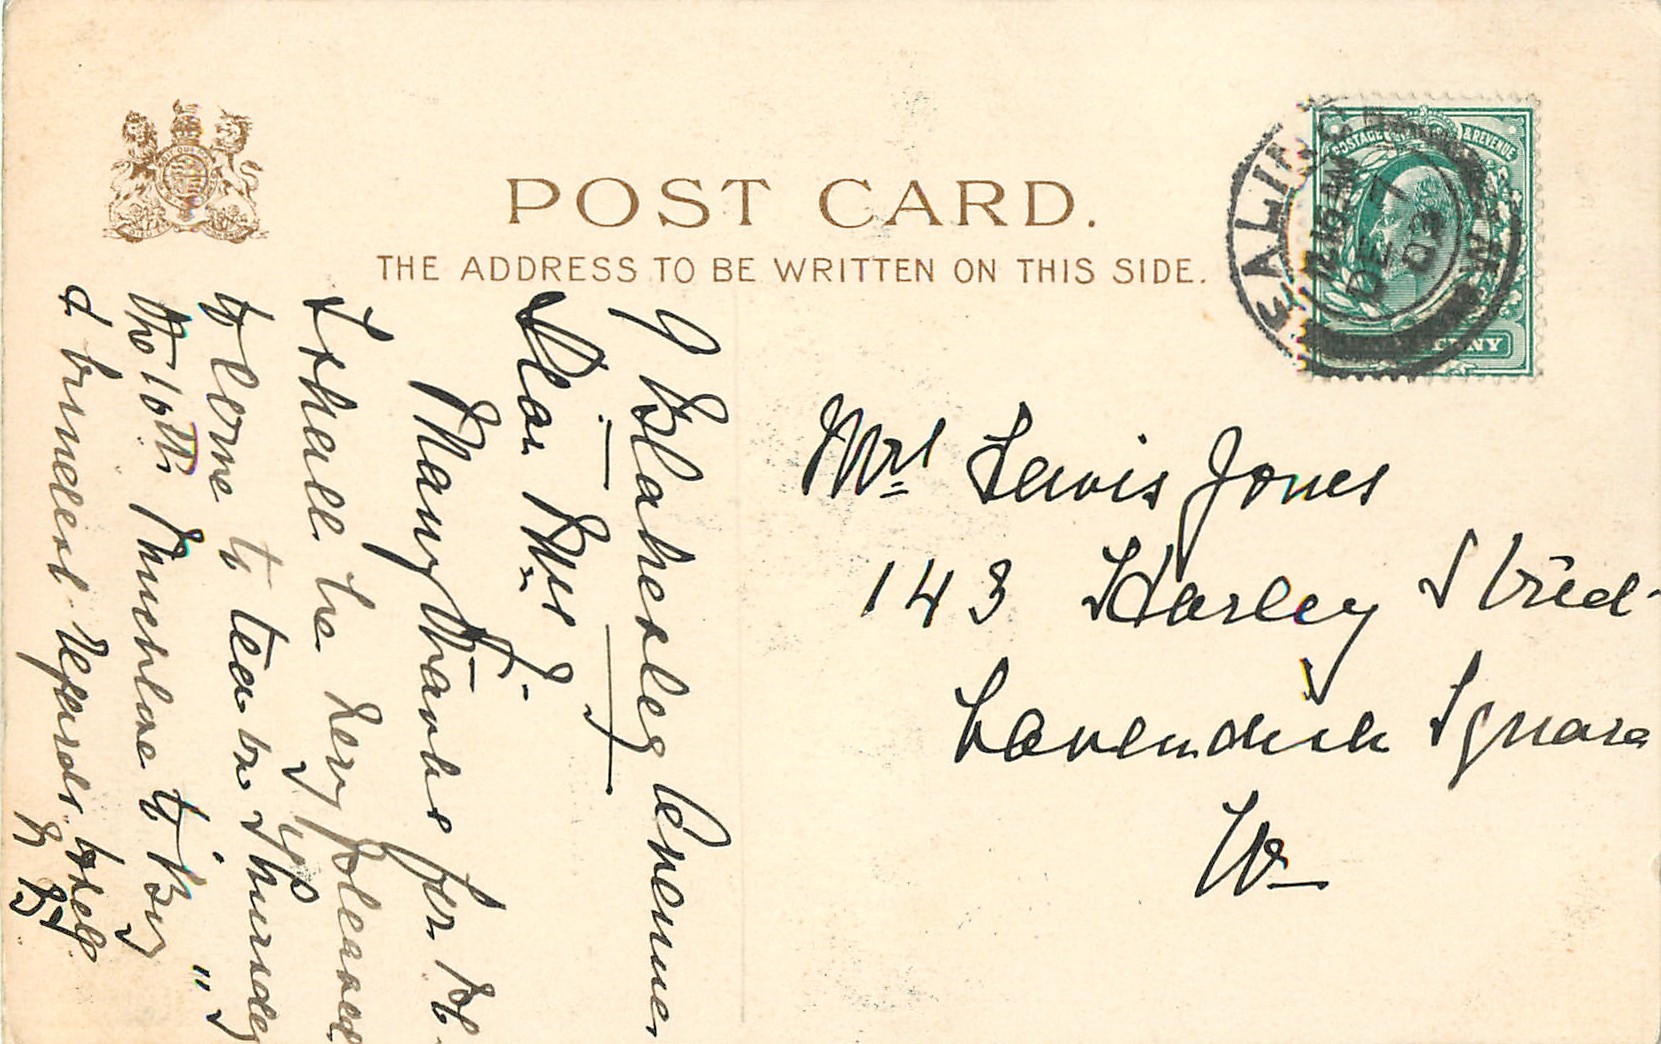 POST CARD.
THE ADDRESS TO BE WRITTEN ON THIS SIDE.
EALING
12.15 PM
DE 7
03
W
POSTAGE & REVENUE
PENNY
Mrs Lewis Jones
143 Harley Street
Cavendish Square
W
9 Blakesley Avenue
Dear Mrs J.
Many thanks for
I shall be very pleased
to come to tea on Thursday
the 10th
& kindest regards